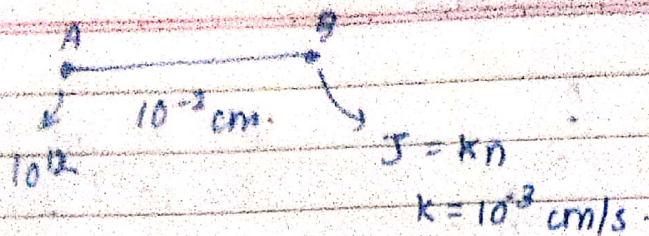 A B
10⁻³ cm.
10¹²
J = Kn
K = 10⁻³ cm/s.